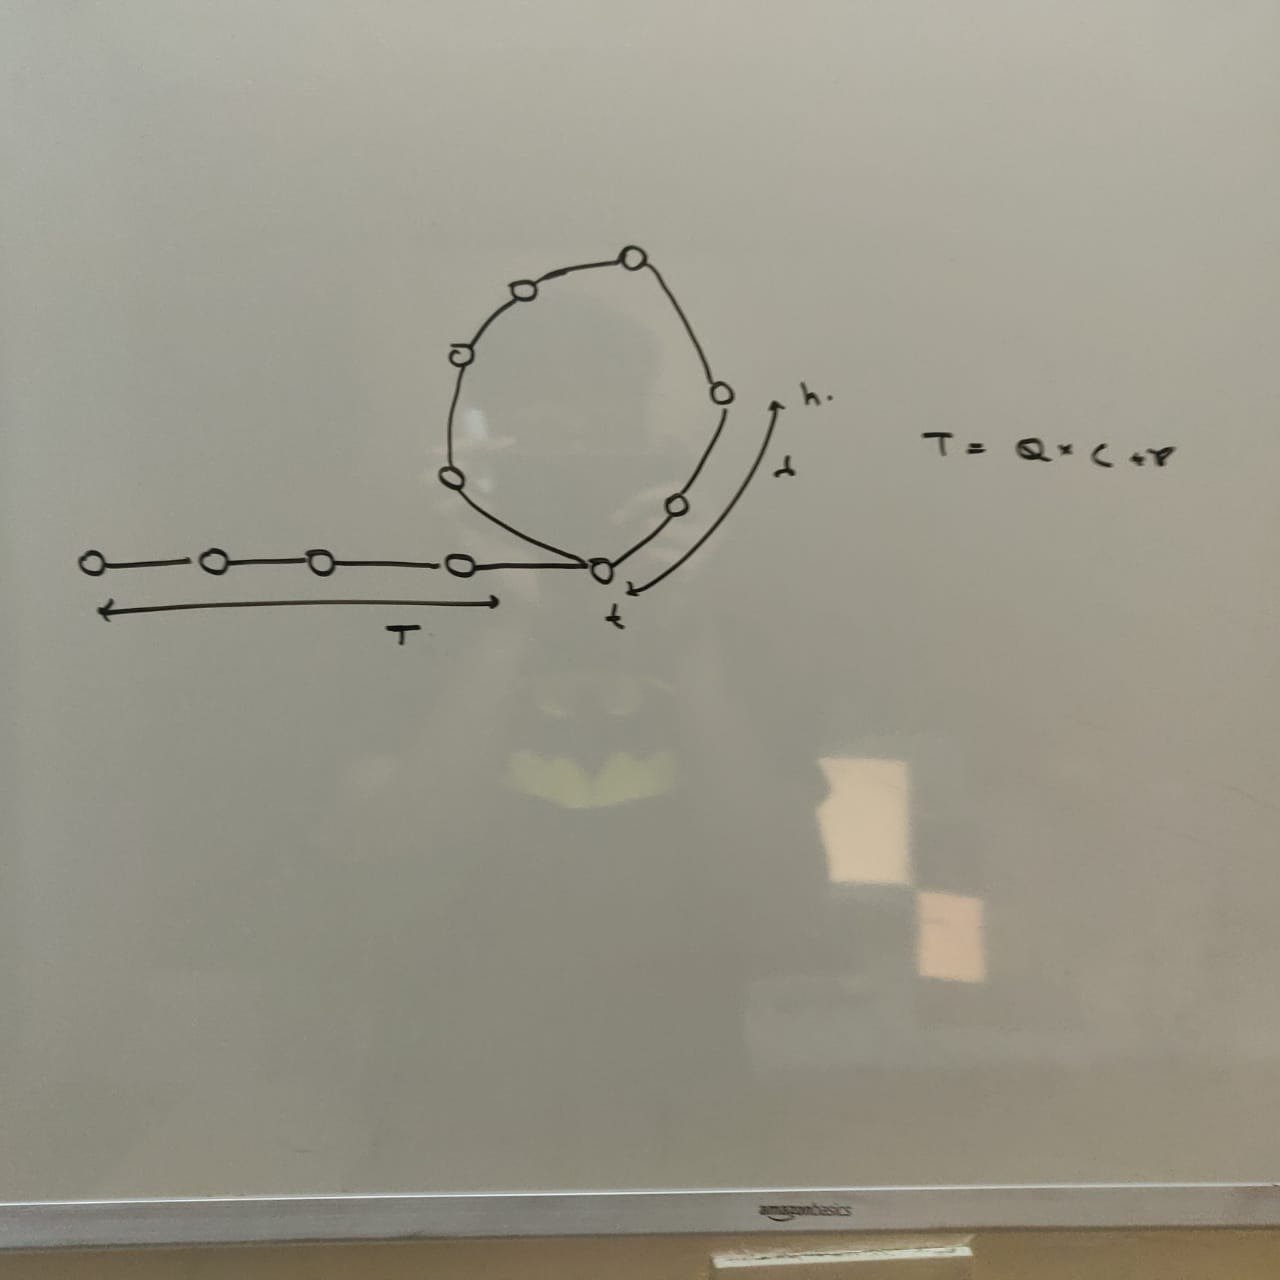 h.
d
T = Q × C + r
t
T
amazonbasics